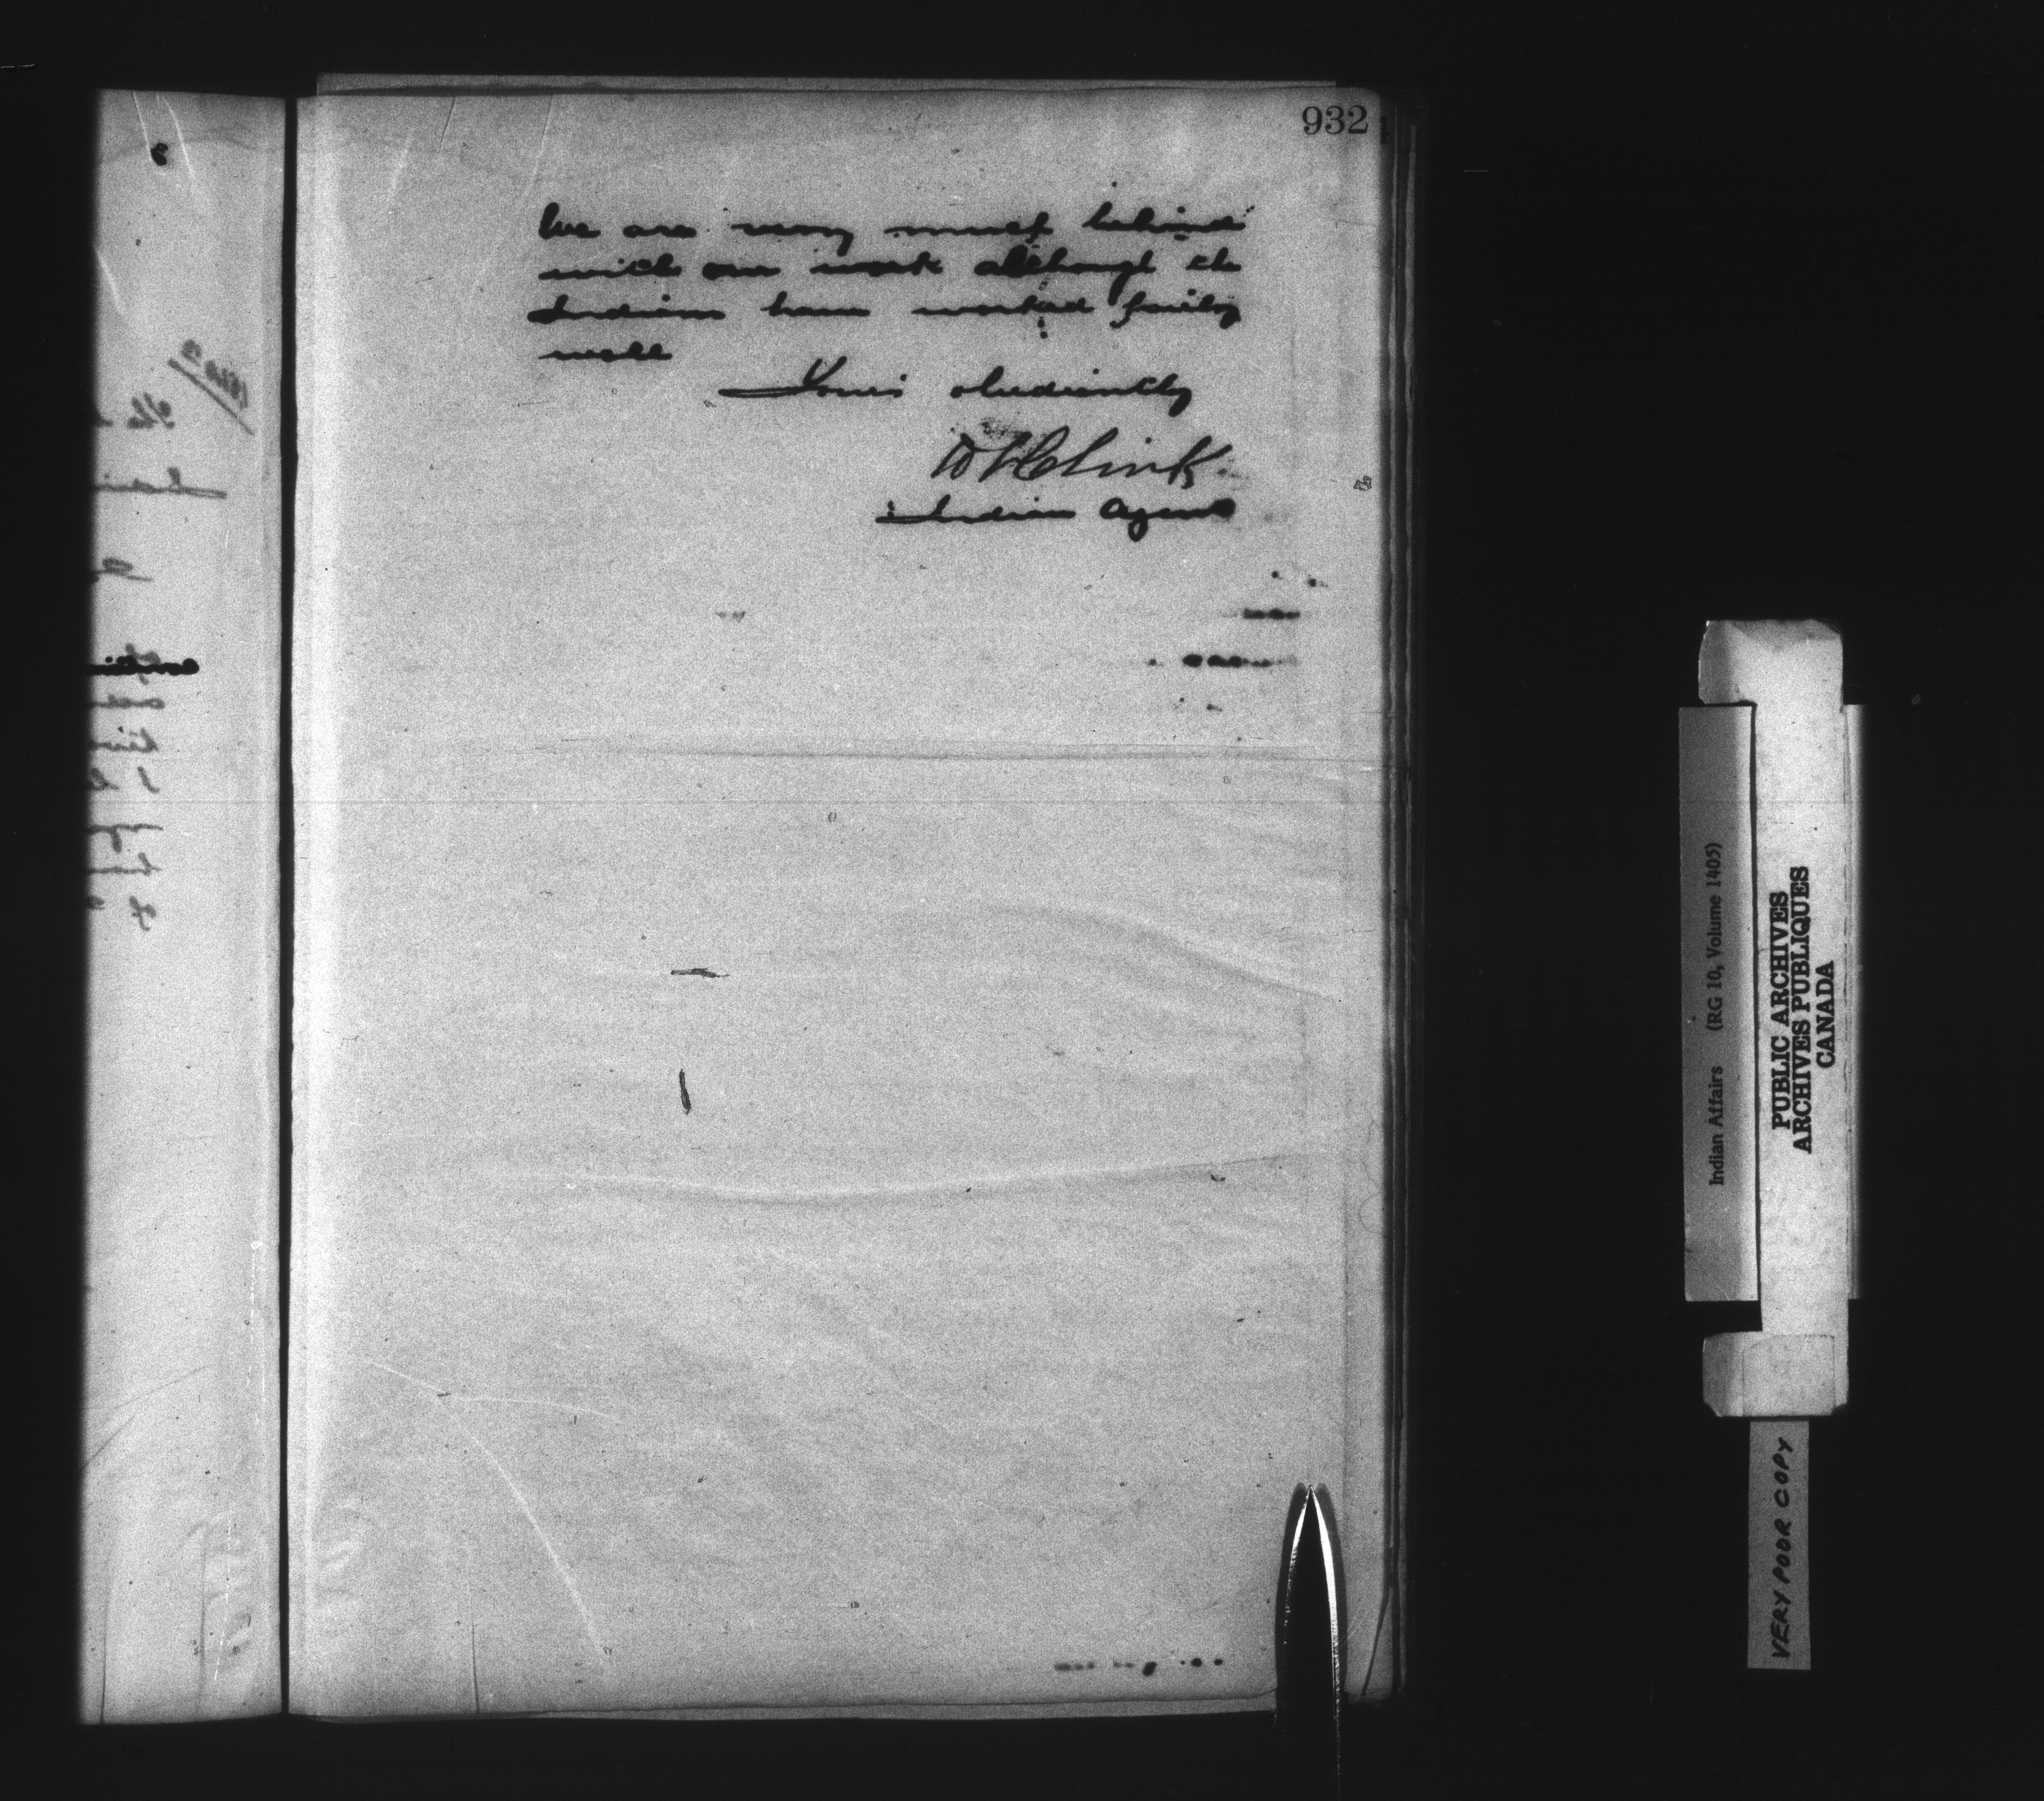 932
We are very much behind
with our work although the
Indians have worked fairly
well
Yours obediently
Indian Agent
Indian Affairs (RG 10, Volume 1405)
PUBLIC ARCHIVES
ARCHIVES PUBLIQUES
CANADA
VERY POOR COPY